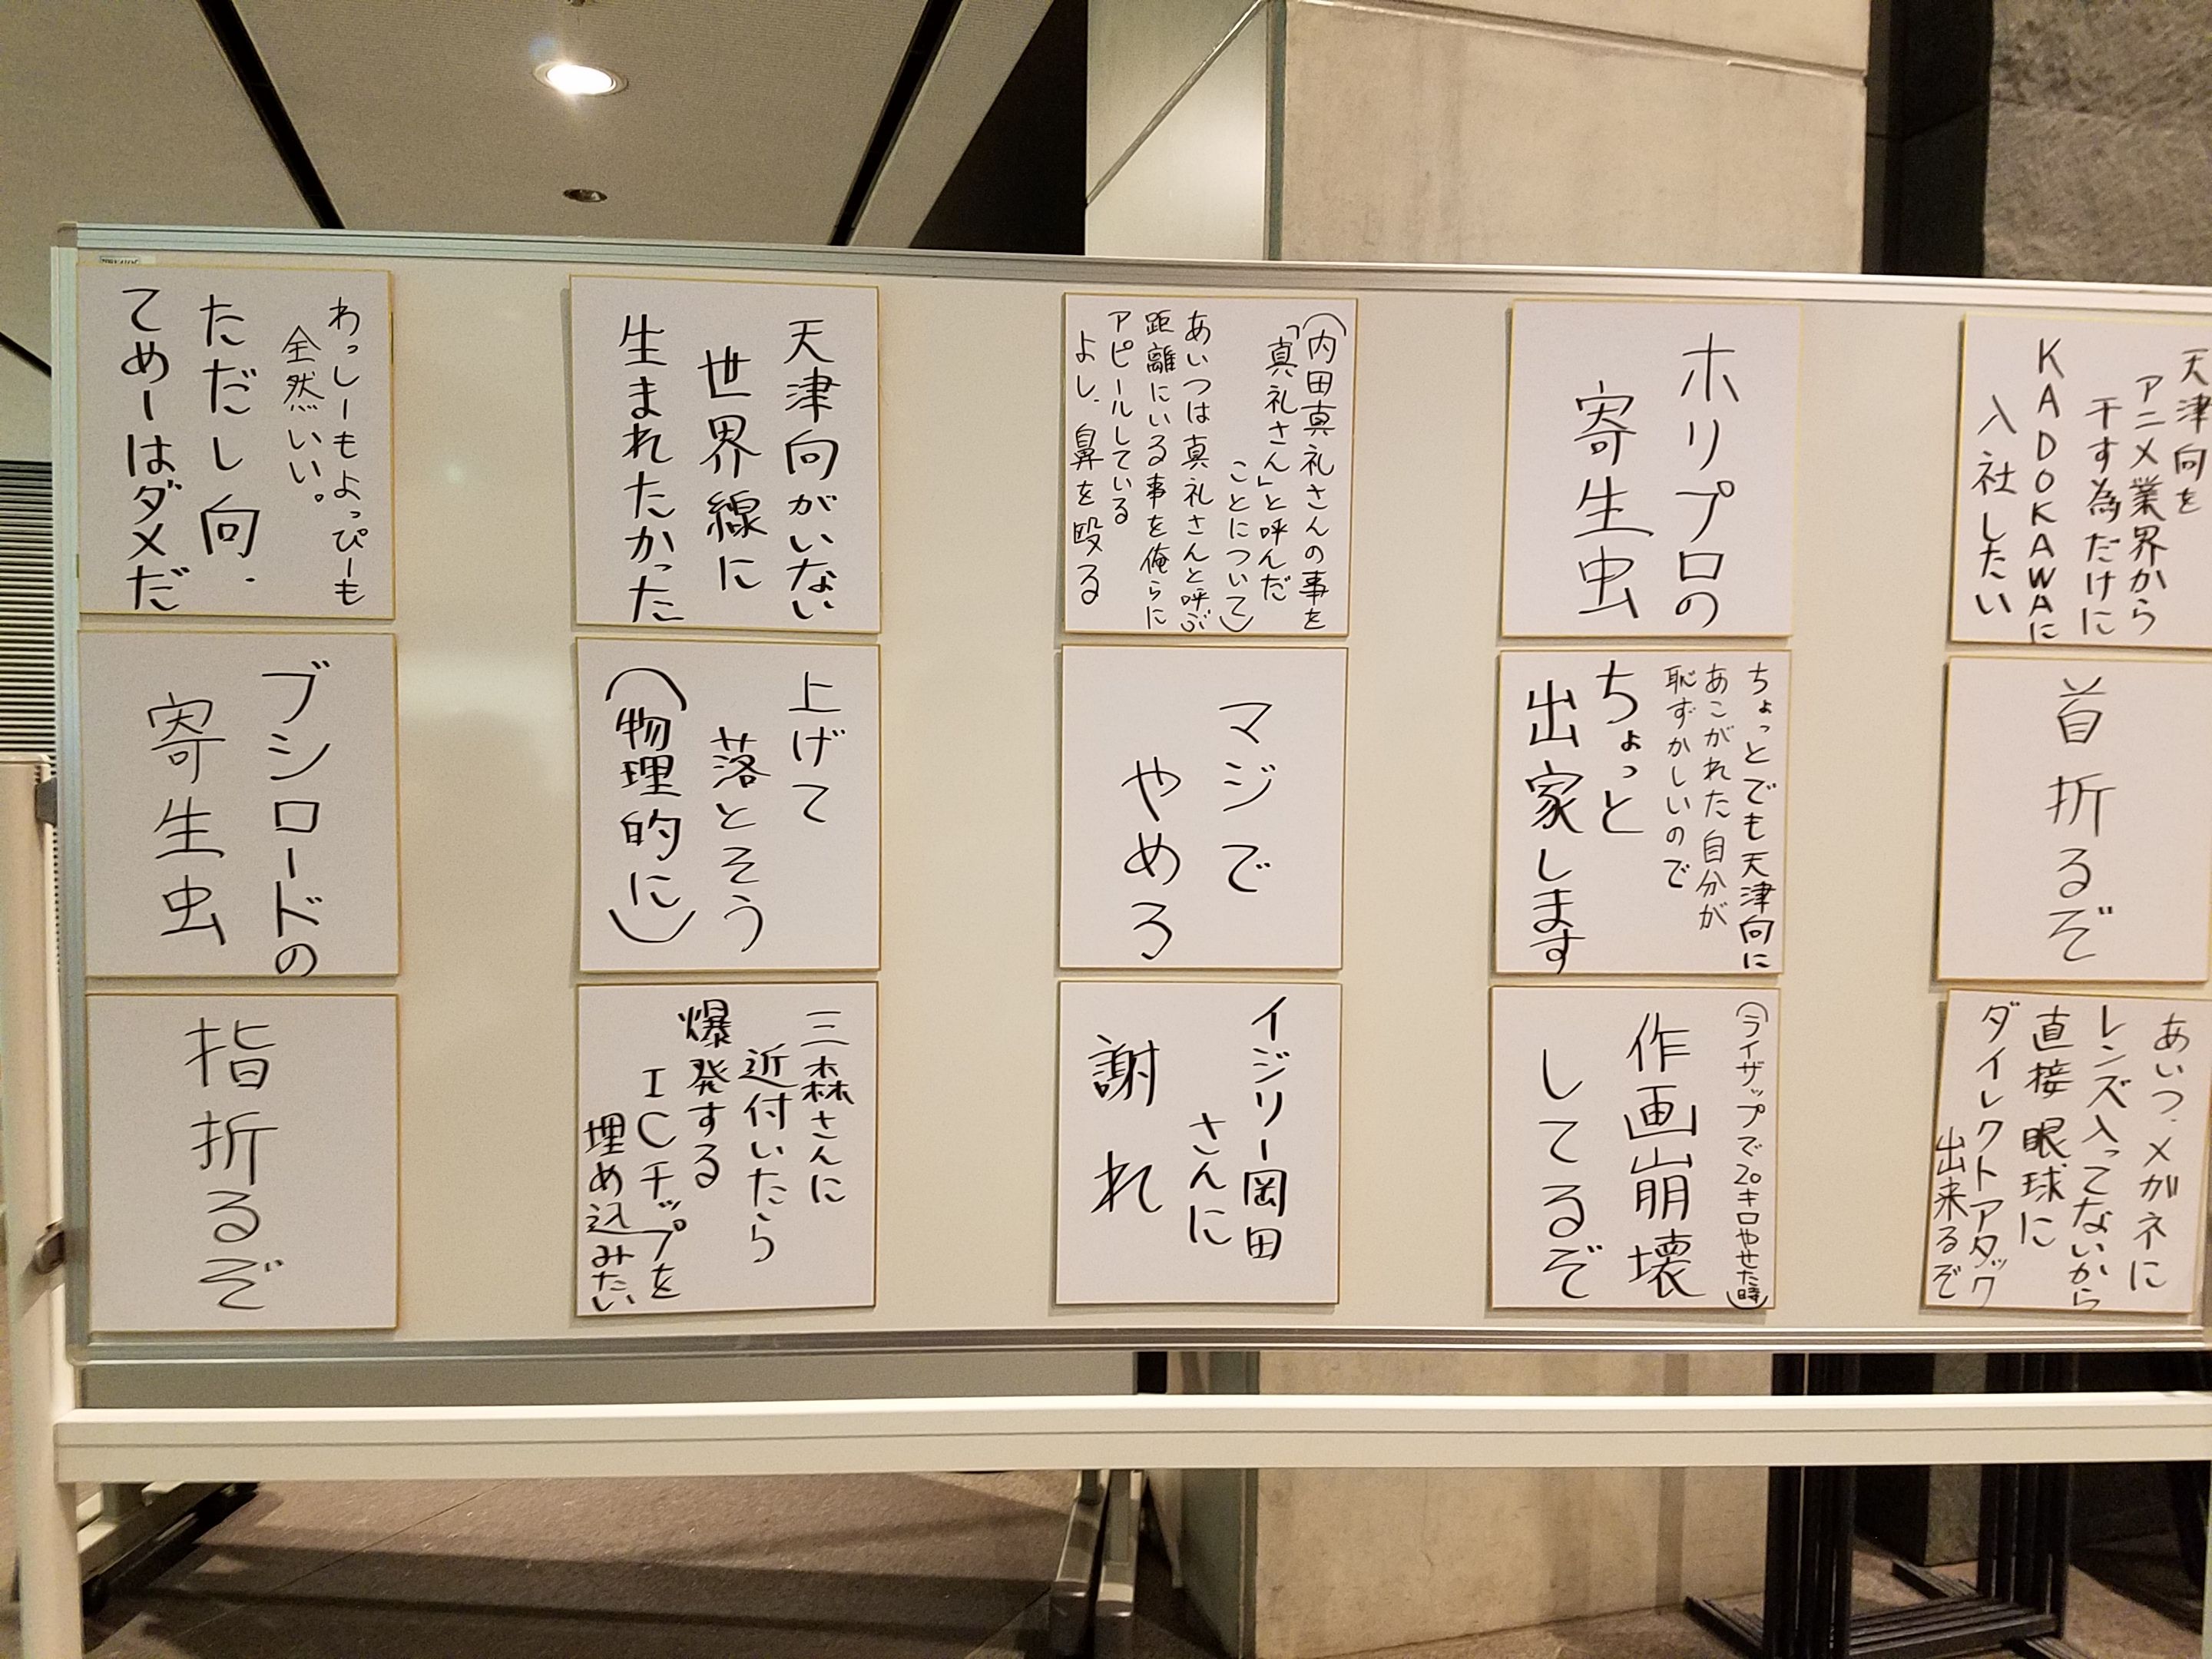 わっしーもよっぴーも
全然いい。
ただし向、
てめーはダメだ
天津向がいない
世界線に
生まれたかった
(内田真礼さんの事を
「真礼さん」と呼んだ
ことについて)
あいつは真礼さんと呼ぶ
距離にいる事を俺らに
アピールしている
よし、鼻を殴る
ホリプロの
寄生虫
天津向を
アニメ業界から
干す為だけに
KADOKAWAに
入社したい
ブシロードの
寄生虫
上げて
落とそう
(物理的に)
マジで
やめろ
ちょっとでも天津向に
あこがれた自分が
恥ずかしいので
ちょっと
出家します
首折るぞ
指折るぞ
三森さんに
近付いたら
爆発する
ICチップを
埋め込みたい
イジリー岡田
さんに
謝れ
(ライザップで20キロやせた時)
作画崩壊
してるぞ
あいつ、メガネに
レンズ入ってないから
直接眼球に
ダイレクトアタック
出来るぞ